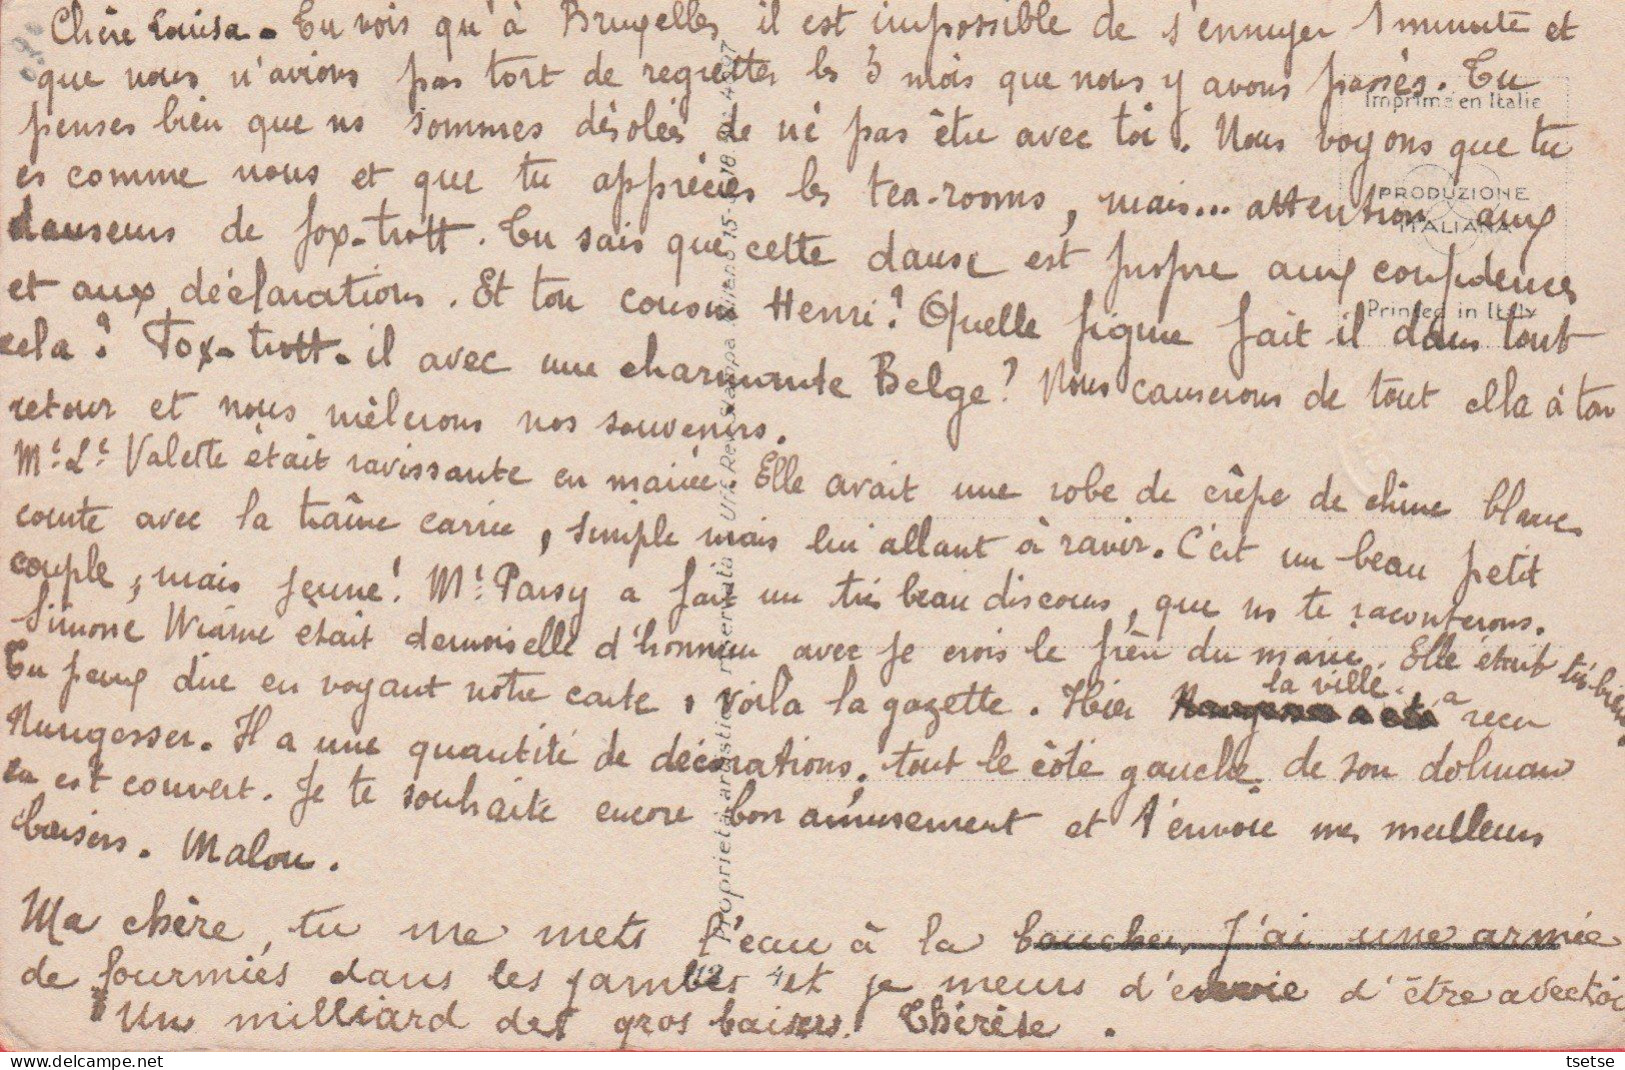 Chère Louisa. Tu vois qu'à Bruxelles il est impossible de s'ennuyer 1 minute et
que nous n'avions pas tort de regretter les 3 mois que nous y avons passés. Tu
penses bien que ns sommes désolées de ne pas être avec toi. Nous voyons que tu
es comme nous et que tu apprécies les tea-rooms, mais... attention aux
danseurs de fox-trott. Tu sais que cette danse est propre aux confidences
et aux déclarations. Et ton cousin Henri? Quelle figure fait il dans tout
cela? Fox-trott-il avec une charmante Belge? Nous causerons de tout cela à ton
retour et nous mêlerons nos souvenirs.
Valette était ravissante en mariée. Elle avait une robe de crêpe de chine blanc
courte avec la traîne carrée, simple mais lui allant à ravir. C'est un beau petit
couple, mais jeune! Mr Parsy a fait un très beau discours, que ns te raconterons.
Simone Wiame était demoiselle d'honneur avec je crois le frère du marié. Elle était très bien
Tu peux dire en voyant notre carte, voilà la gazette. Hier la ville a reçu
Nungesser. Il a une quantité de décorations, tout le côté gauche de son dolman
en est couvert. Je te souhaite encore bon amusement et t'envoie mes meilleurs
baisers. Malou.
Ma chère, tu me mets l'eau à la bouche, J'ai une armée
de fourmiés dans les jambes et je meurs d'envie d'être avec toi
Un milliard de gros baisers. Thérèse.
Imprimé en Italie
PRODUZIONE
ITALIANA
Printed in Italy
tsetse